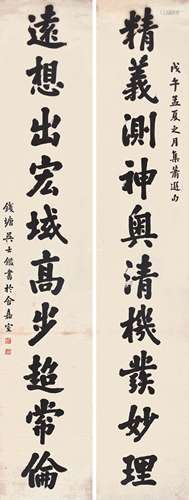 戊午孟夏之月集蕭選句
精義測神奧清機發妙理
遠想出宏域高步超常倫
錢塘吳士鑑書於含嘉室